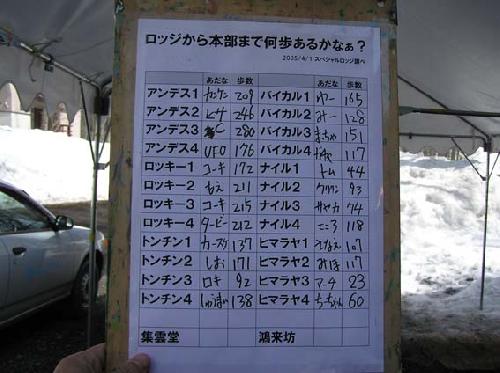 ロッジから本部まで何歩あるかなぁ？
2005/4/1 スペシャルロッジ調べ
あだな 歩数 あだな 歩数
アンデス1 209 バイカル1 165
アンデス2 ヒゲ 246 バイカル2 みー 128
アンデス3 280 バイカル3 151
アンデス4 UFO 176 バイカル4 117
ロッキー1 コーキ 172 ナイル1 トム 44
ロッキー2 211 ナイル2 93
ロッキー3 コーキ 215 ナイル3 サヤカ 74
ロッキー4 ダービー 212 ナイル4 こころ 118
トンチン1 137 ヒマラヤ1 107
トンチン2 しお 171 ヒマラヤ2 みほ 117
トンチン3 ロキ 92 ヒマラヤ3 アーチ 23
トンチン4 138 ヒマラヤ4 ちーちゃん 60
集雲堂 鴻来坊